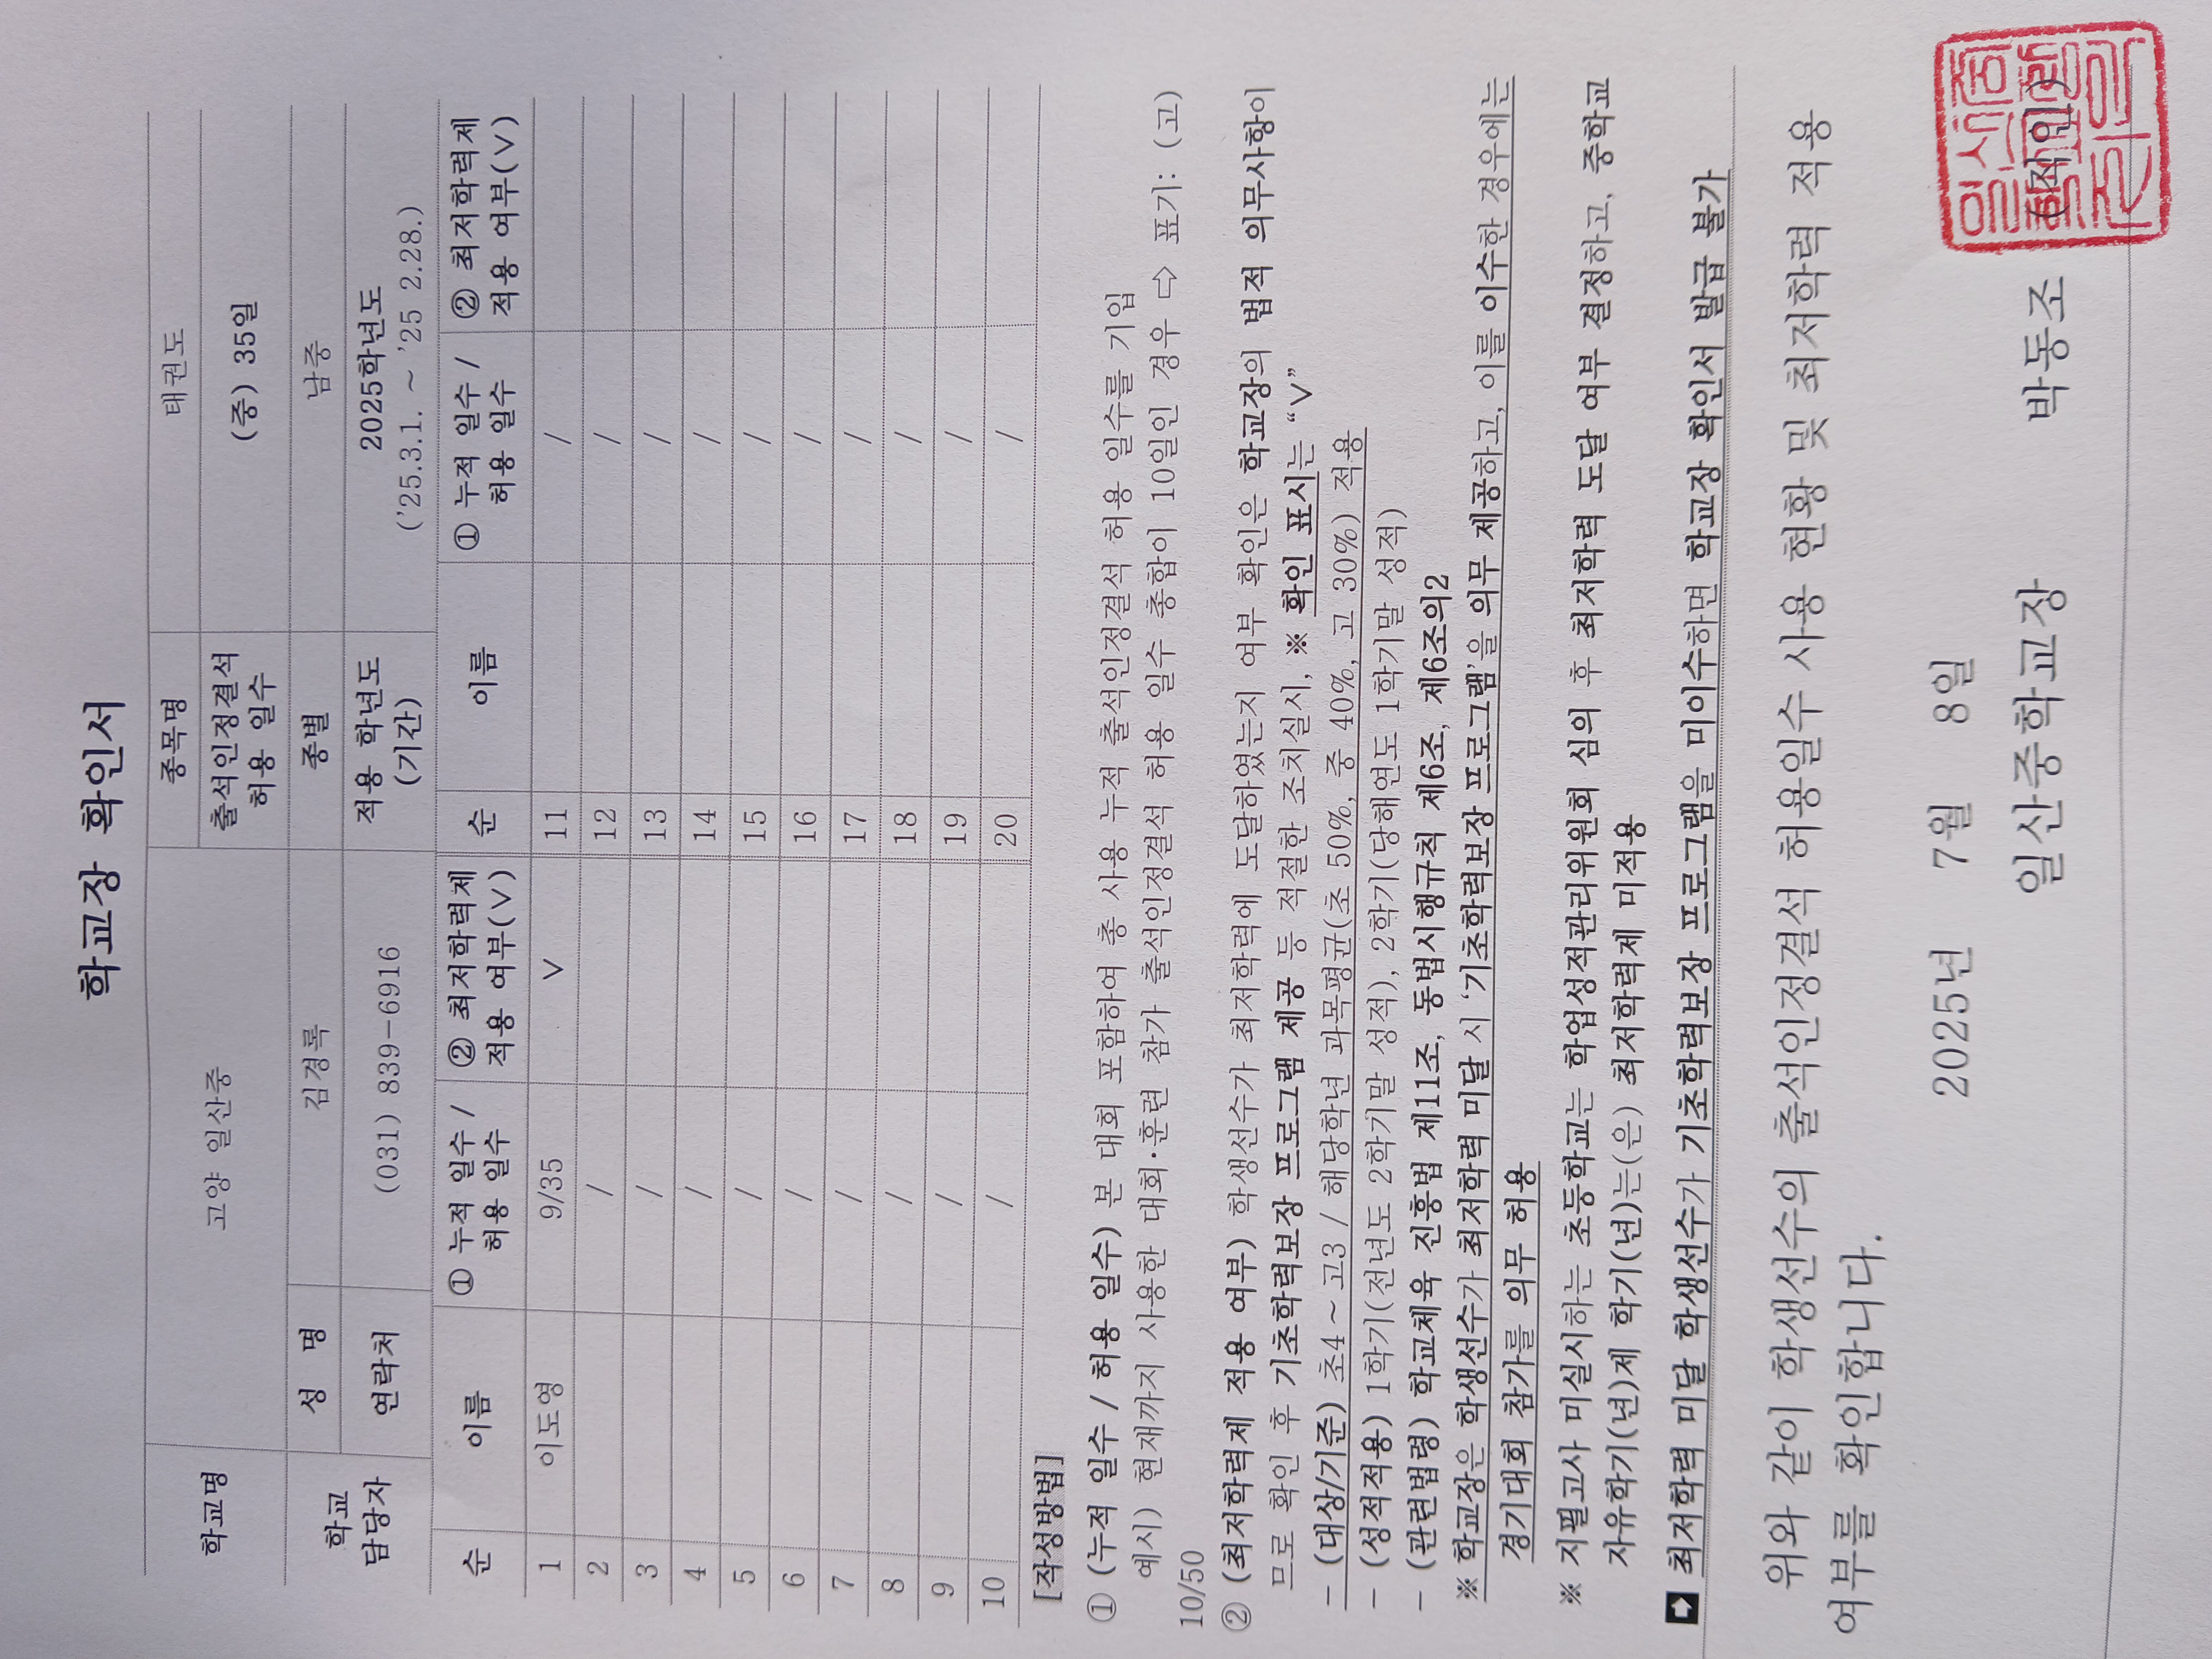 학교장 확인서
학교명 고양 일산중 종목명 태권도
출석인정결석 허용 일수 (중) 35일
학교 담당자 성 명 김경록 종별 남중
연락처 (031) 839-6916 적용 학년도 (기간) 2025학년도 ('25.3.1. ~ '25 2.28.)
순 이름 ① 누적 일수 / 허용 일수 ② 최저학력제 적용 여부(∨) 순 이름 ① 누적 일수 / 허용 일수 ② 최저학력제 적용 여부(∨)
1 이도영 9/35 ∨ 11 /
2 / 12 /
3 / 13 /
4 / 14 /
5 / 15 /
6 / 16 /
7 / 17 /
8 / 18 /
9 / 19 /
10 / 20 /
[작성방법]
① (누적 일수 / 허용 일수) 본 대회 포함하여 총 사용 누적 출석인정결석 허용 일수를 기입
예시) 현재까지 사용한 대회·훈련 참가 출석인정결석 허용 일수 총합이 10일인 경우 ⇨ 표기: (고)
10/50
② (최저학력제 적용 여부) 학생선수가 최저학력에 도달하였는지 여부 확인은 학교장의 법적 의무사항이
므로 확인 후 기초학력보장 프로그램 제공 등 적절한 조치실시, ※ 확인 표시는 “∨”
- (대상/기준) 초4 ~ 고3 / 해당학년 과목평균(초 50%, 중 40%, 고 30%) 적용
- (성적적용) 1학기(전년도 2학기말 성적), 2학기(당해연도 1학기말 성적)
- (관련법령) 학교체육 진흥법 제11조, 동법시행규칙 제6조, 제6조의2
※ 학교장은 학생선수가 최저학력 미달 시 ‘기초학력보장 프로그램’을 의무 제공하고, 이를 이수한 경우에는
경기대회 참가를 의무 허용
※ 지필고사 미실시하는 초등학교는 학업성적관리위원회 심의 후 최저학력 도달 여부 결정하고, 중학교
자유학기(년)제 학기(년)는(은) 최저학력제 미적용
➡ 최저학력 미달 학생선수가 기초학력보장 프로그램을 미이수하면 학교장 확인서 발급 불가
위와 같이 학생선수의 출석인정결석 허용일수 사용 현황 및 최저학력 적용
여부를 확인합니다.
2025년 7월 8일
일산중학교장 박동조 (직인)